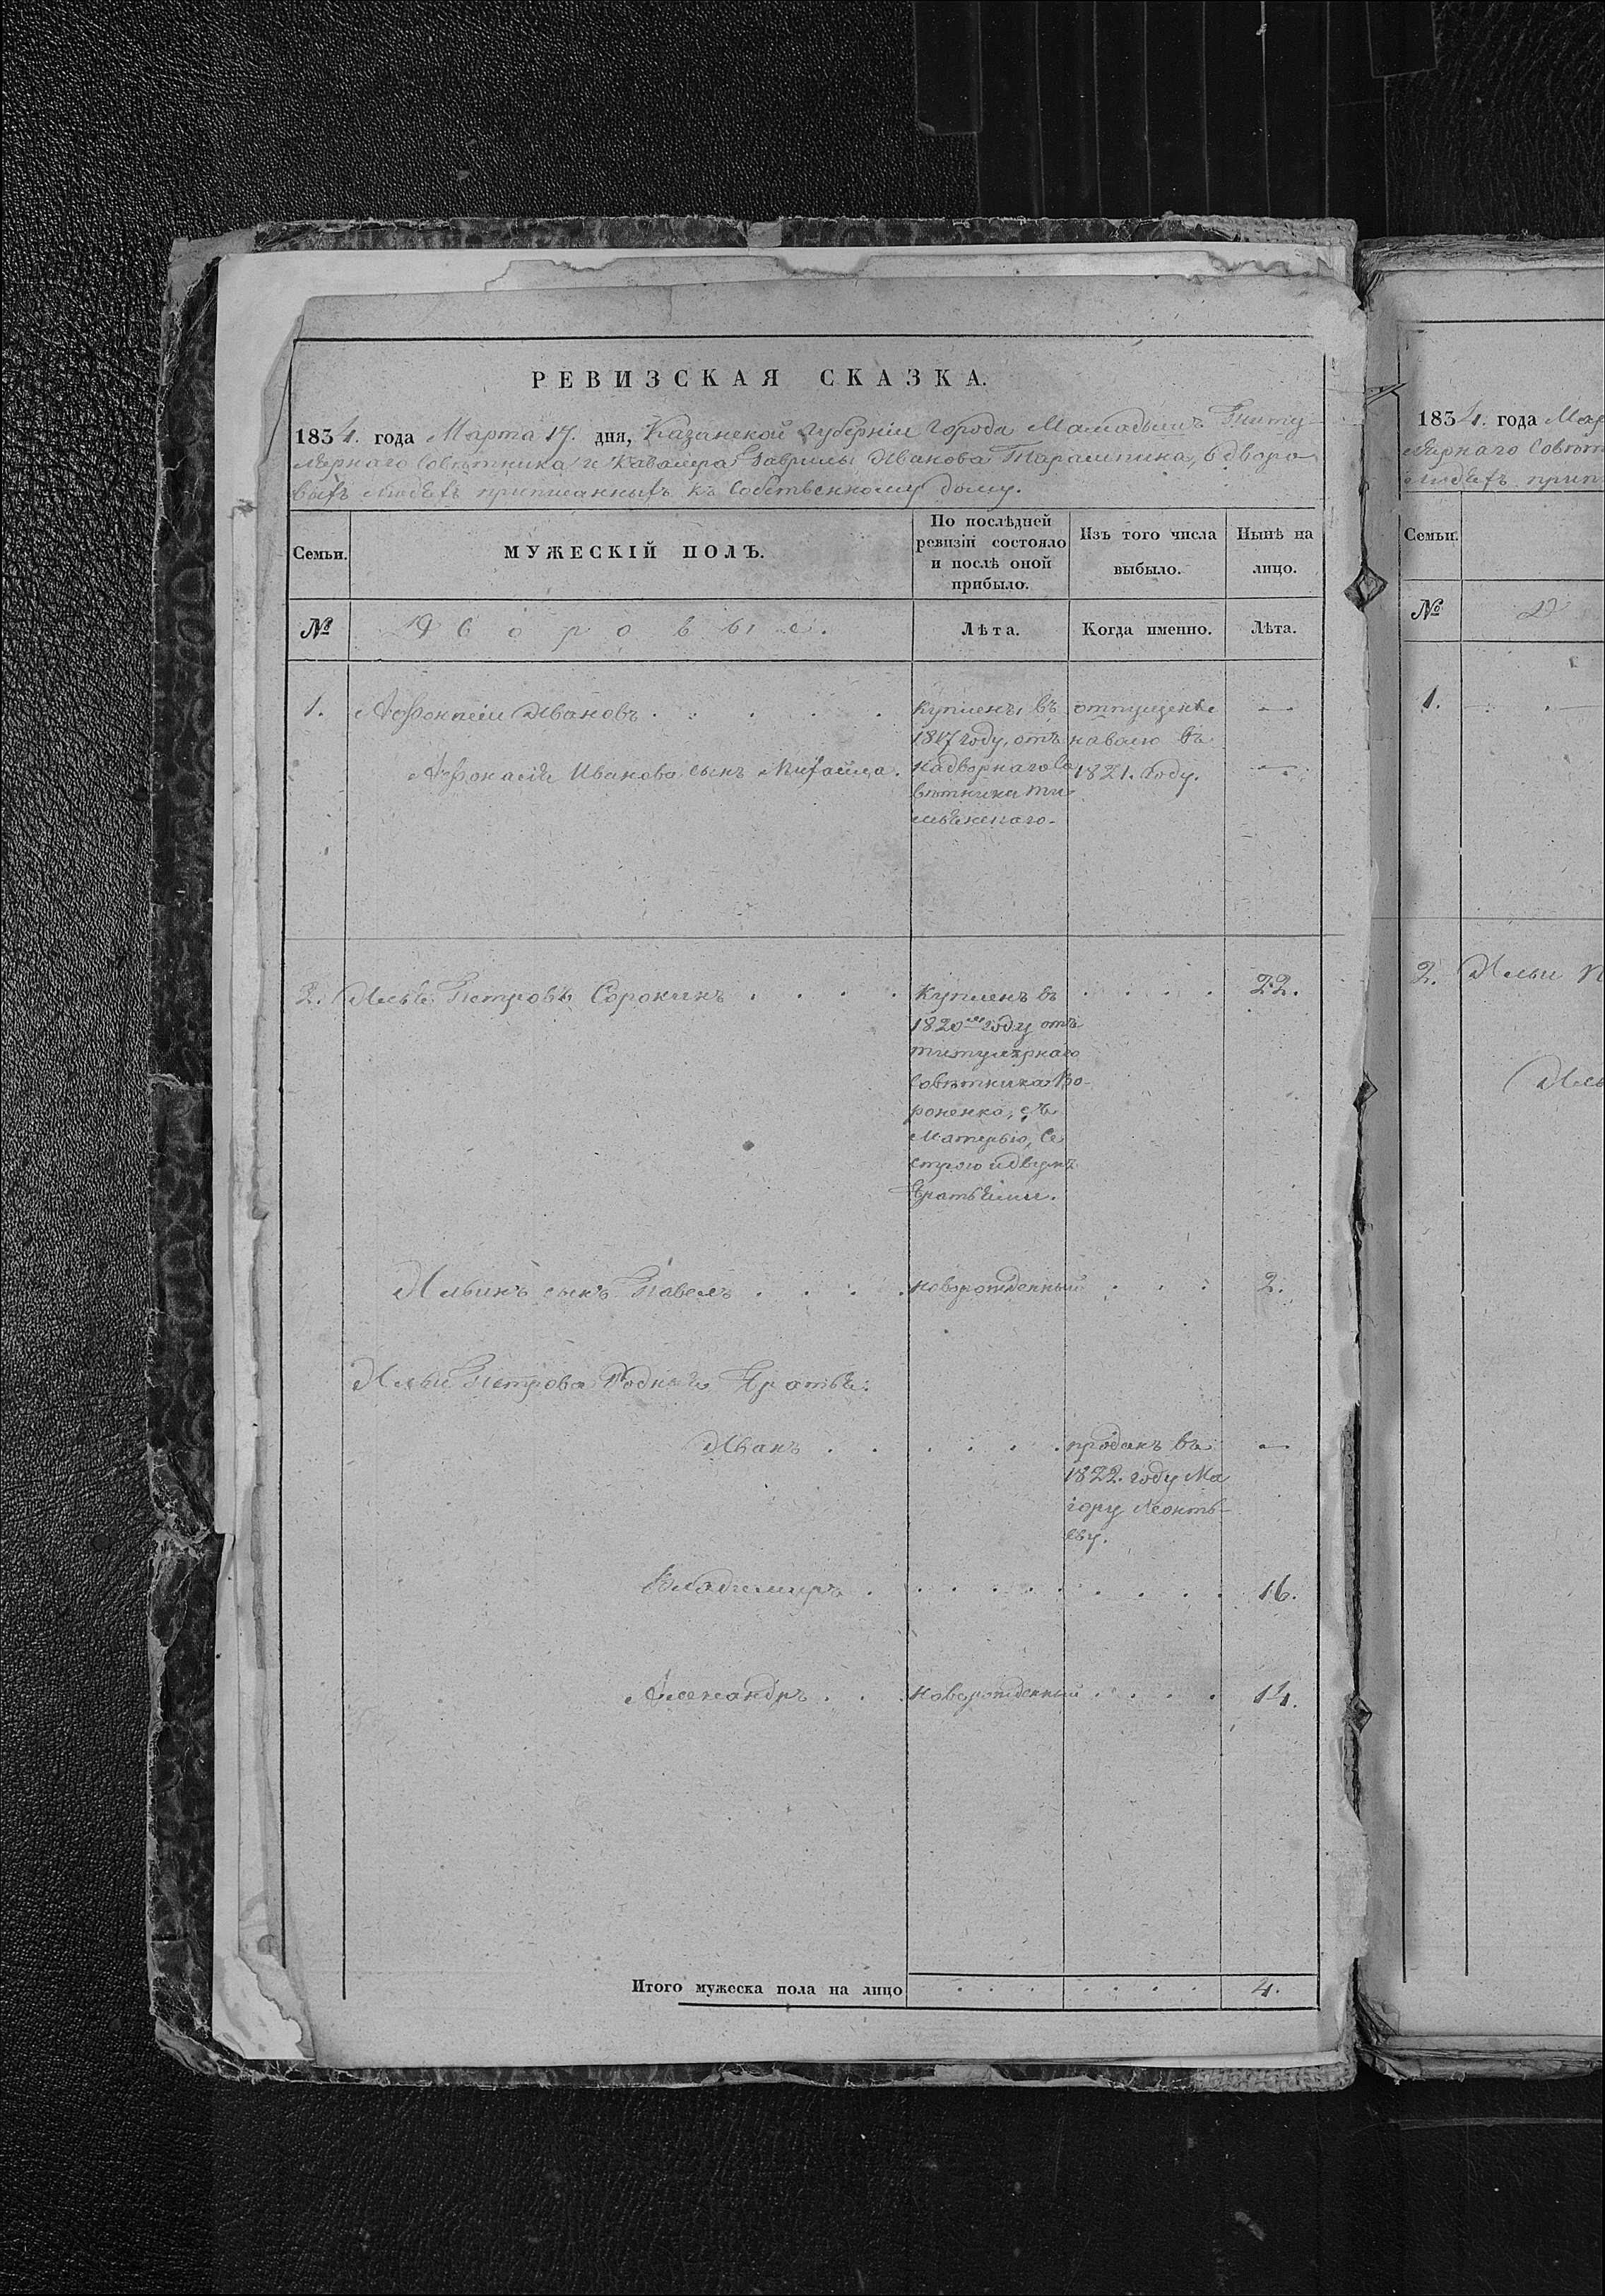 РЕВИЗСКАЯ СКАЗКА.
1834. года Марта 17. дня, Казанской Губерніи города Мамадышъ Титу-
лярнаго Совѣтника и Кавалера Гаврилы Иванова, о дворо-
выхъ людяхъ приписанныхъ къ собственному дому.
Семьи.
МУЖЕСКІЙ ПОЛЪ.
По послѣдней
ревизіи состояло
и послѣ оной
прибыло.
Изъ того числа
выбыло.
Нынѣ на
лицо.
№
Дворовые.
Лѣта.
Когда именно.
Лѣта.
1. Афонасій Ивановъ
Афонасія Иванова сынъ Михайла.
куплены въ
1817 году, отъ
надворнаго Со
вѣтника
отпущены
на волю въ
1821. году.
—
—
2. Илья Петровъ Сорокинъ
Купленъ въ
1820 году отъ
титулярнаго
Совѣтника Во-
роненко, съ
Матерью, Се
строю и двумя
братьями.
22.
Ильинъ сынъ Павелъ
новорожденный
2.
Ильи Петрова Родныя Братья:
Иванъ
проданъ въ
1822. году Ма
іору Леонть-
еву.
—
Владимиръ
16.
Александръ
новорожденный
14.
Итого мужеска пола на лицо
4.
1834. года Мар
лярнаго Совѣт
людяхъ прип
Семьи.
№
Д
1.
2. Ильи П
Иль